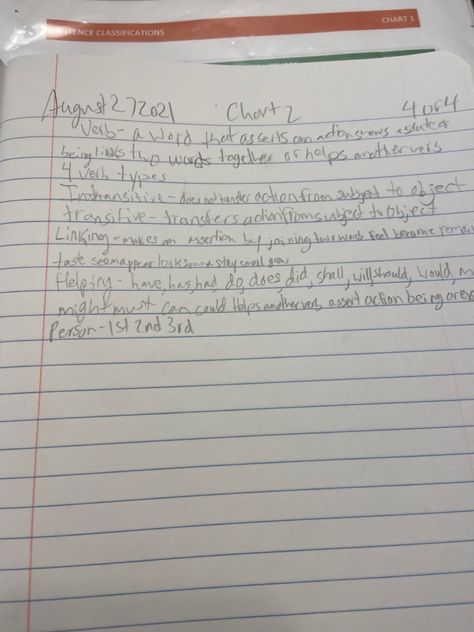 CHART 1
ENTENCE CLASSIFICATIONS
August 27 2021 Chart 2 4 of 4
Verb - a word that asserts an action shows a state of
being links two words together or helps another verb
4 verb types
Intransitive - does not transfer action from subject to object
transitive - transfers action from subject to object
Linking - makes an assertion by joining two words feel become remain
taste seem appear look sound stay smell grow
Helping - have, has, had, do, does, did, shall, will should, would, m
might must can could helps another verb, assert action being or
Person - 1st 2nd 3rd